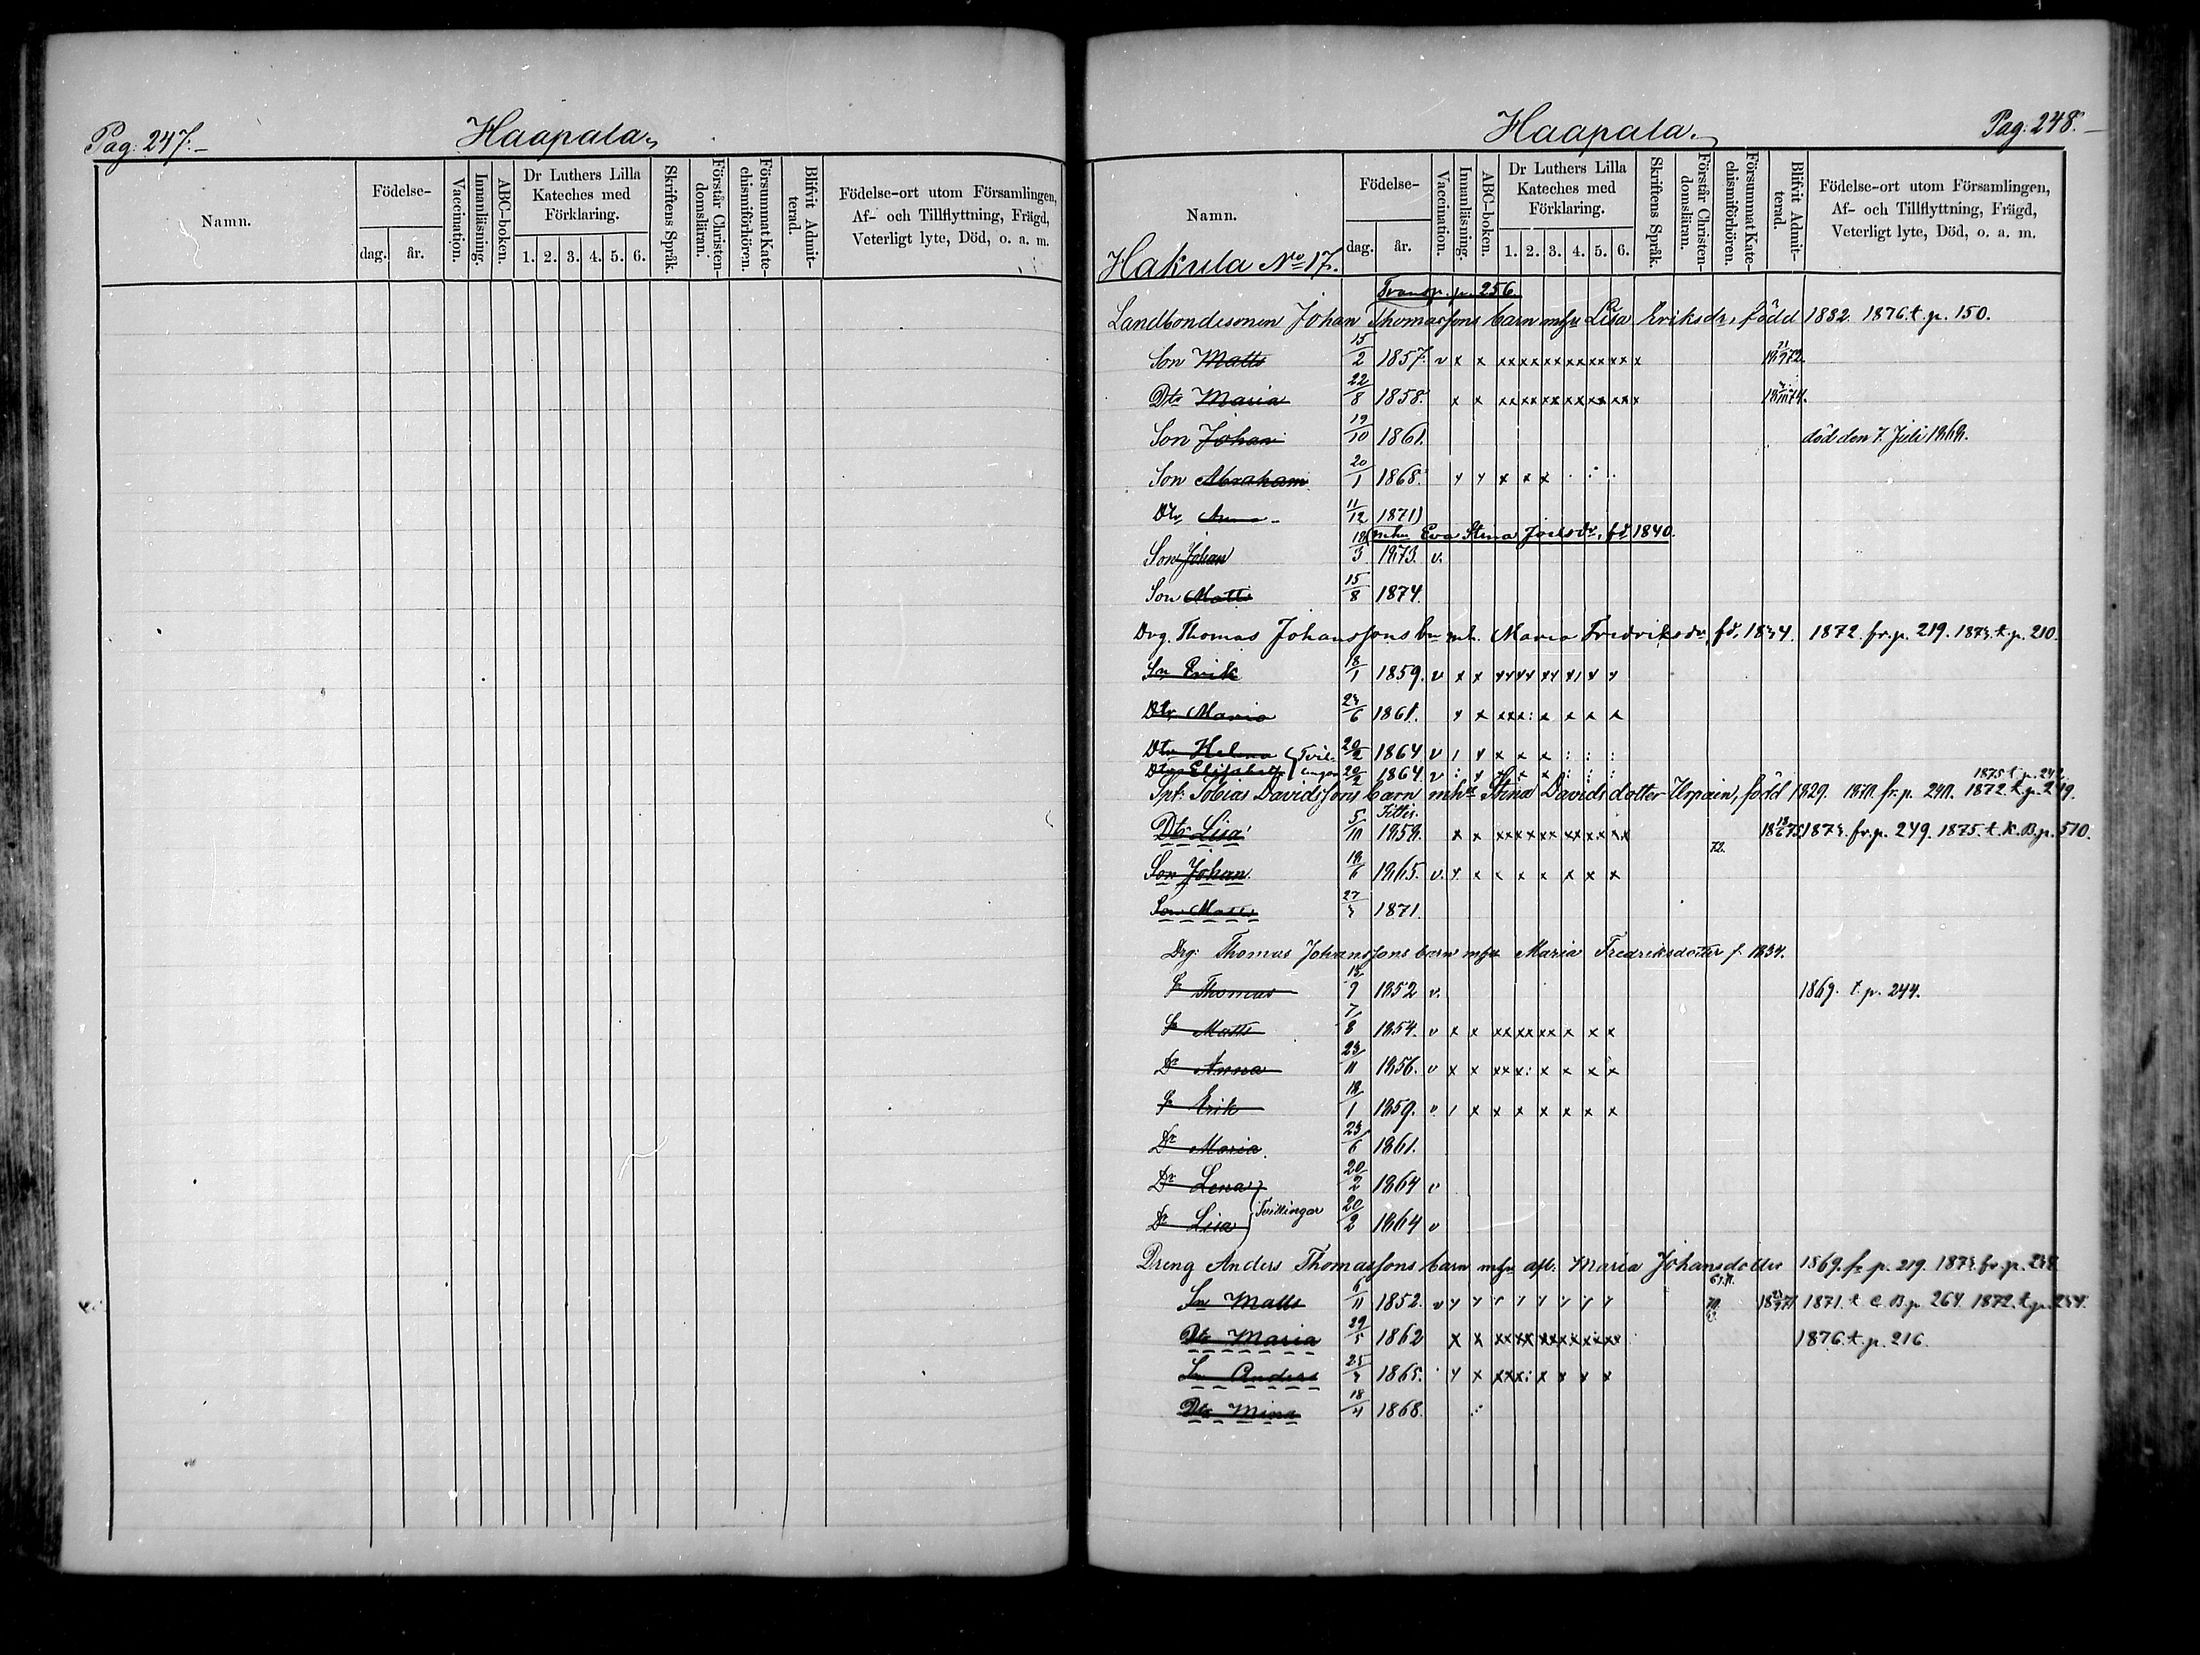 Pag. 247.
Haapala.
Namn.
Födelse-
dag.
år.
Vaccination.
Innanläsning.
ABC-boken.
Dr Luthers Lilla
Kateches med
Förklaring.
1. 2. 3. 4. 5. 6.
Skriftens Språk.
Förstår Christen-
domsläran.
Försummat Kate-
chismiförhören.
Blifvit Admit-
terad.
Födelse-ort utom Församlingen,
Af- och Tillflyttning, Frägd,
Veterligt lyte, Död, o. a. m.
Haapala.
Pag. 248.
Namn.
Födelse-
dag.
år.
Vaccination.
Innanläsning.
ABC-boken.
Dr Luthers Lilla
Kateches med
Förklaring.
1. 2. 3. 4. 5. 6.
Skriftens Språk.
Förstår Christen-
domsläran.
Försummat Kate-
chismiförhören.
Blifvit Admit-
terad.
Födelse-ort utom Församlingen,
Af- och Tillflyttning, Frägd,
Veterligt lyte, Död, o. a. m.
Hakula No 17.
Transp. p. 256.
Landbondesonen Johan Thomassons barn mhu Lisa Eriksdr, född 1832. 1876 t. p. 150.
Son Matts 15/2 1857. v x x xx xx xx xx xx xx x
Dtr Maria 22/8 1858. x x xx xx xx xx xx xx x
Son Johan 19/10 1861. död den 7. Juli 1868.
Son Abraham 20/1 1868. y y x x x
Dtr Anna 11/12 1871)
(mhu Eva Stina Joelsdr, fd 1840.
Son Johan 18/3 1873. v.
Son Matts 15/8 1874.
Drg. Thomas Johanssons bn mh. Maria Fredriksdr, fd, 1834. 1872 fr. p. 219. 1873. t. p. 210.
Sn Erik 18/1 1859. v x x
Dtr Maria 23/6 1861. y x xx x: x x x x
Dtr Helena (Tvil- 20/2 1864 v 1 y x x x : : :
Dtr Elisabeth lingar 20/2 1864 v : y x x : : :
1875 t. p. 242.
Spt. Tobias Davidssons barn mhu Stina Davidsdotter Urpain, född 1829. 1870. fr. p. 240. 1872 t. p. 249.
Dtr Lisa 5/10 1858. x x xx xx xx xx xx xx 1873. fr. p. 249. 1875. t. K. B. p. 510.
72.
Son Johan. 18/6 1865. v. y. x x x x x x x
Son Matts 27/3 1871.
Drg. Thomas Johanssons barn mhu Maria Fredriksdotter f. 1834.
Sn Thomas 1852 v. 1869. t. p. 244.
Sn Matts 7/8 1854. v x x xx xx xx x x x
Dr Anna 23/11 1856. v x x xx x: x x x x
Sn Erik 18/1 1859. v 1 x x x x x x x
Dr Maria. 23/6 1861.
Dr Lena 20/2 1864 v
Tvillingar
Dr Lisa 20/2 1864 v
Dreng Anders Thomassons barn mhu afl: Maria Johansdotter 1869. fr. p. 219. 1873. fr. p. 238
Sn Matts 6/11 1852. v y y y y y y y y 1871. t C. B. p. 264. 1872. t. p. 254.
Dtr Maria 29/5 1862 x x xx xx xx xx xx xx 1876. t. p. 216.
Sn Anders 25/3 1865. y x xx x: x y y x
Dtr Mina 18/4 1868.